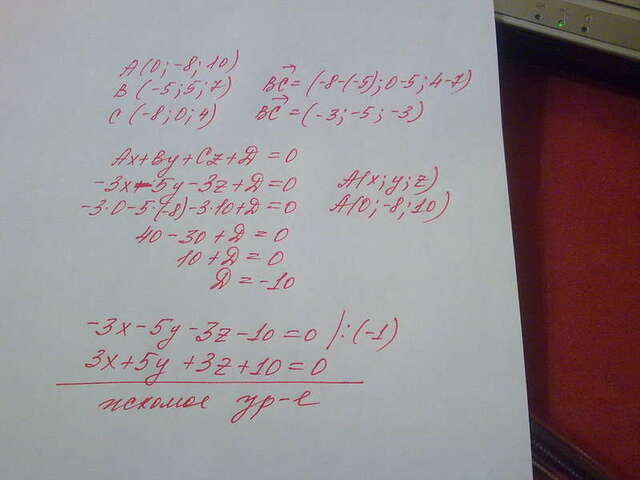 A(0; -8; 10)
B(-5; 5; 7) BC = (-8-(-5); 0-5; 4-7)
C(-8; 0; 4) BC = (-3; -5; -3)
Ax+By+Cz+D=0
-3x-5y-3z+D=0 A(x; y; z)
-3·0-5·(-8)-3·10+D=0 A(0; -8; 10)
40-30+D=0
10+D=0
D=-10
-3x-5y-3z-10=0 /:(-1)
3x+5y+3z+10=0
искомое ур-е